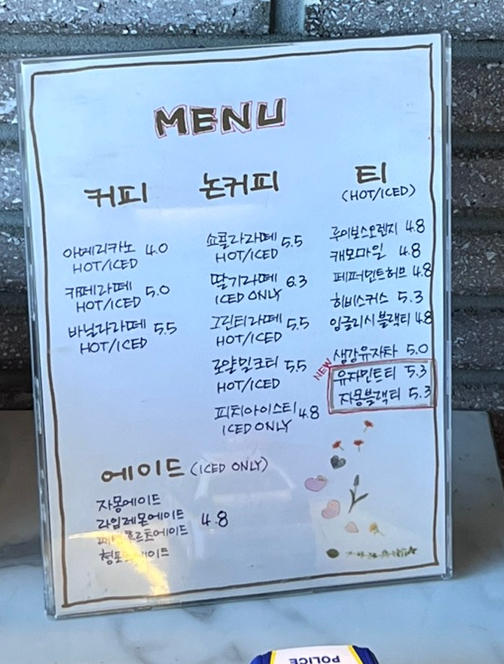 MENU
커피
아메리카노 4.0
HOT/ICED
카페라떼 5.0
HOT/ICED
바닐라라떼 5.5
HOT/ICED
논커피
쇼콜라라떼 5.5
HOT/ICED
딸기라떼 6.3
ICED ONLY
그린티라떼 5.5
HOT/ICED
로얄밀크티 5.5
HOT/ICED
피치아이스티 4.8
ICED ONLY
티
(HOT/ICED)
루이보스오렌지 4.8
캐모마일 4.8
페퍼민트허브 4.8
히비스커스 5.3
잉글리시블랙티 4.8
생강유자차 5.0
NEW
유자민트티 5.3
자몽블랙티 5.3
에이드 (ICED ONLY)
자몽에이드
라임레몬에이드 4.8
POLICE